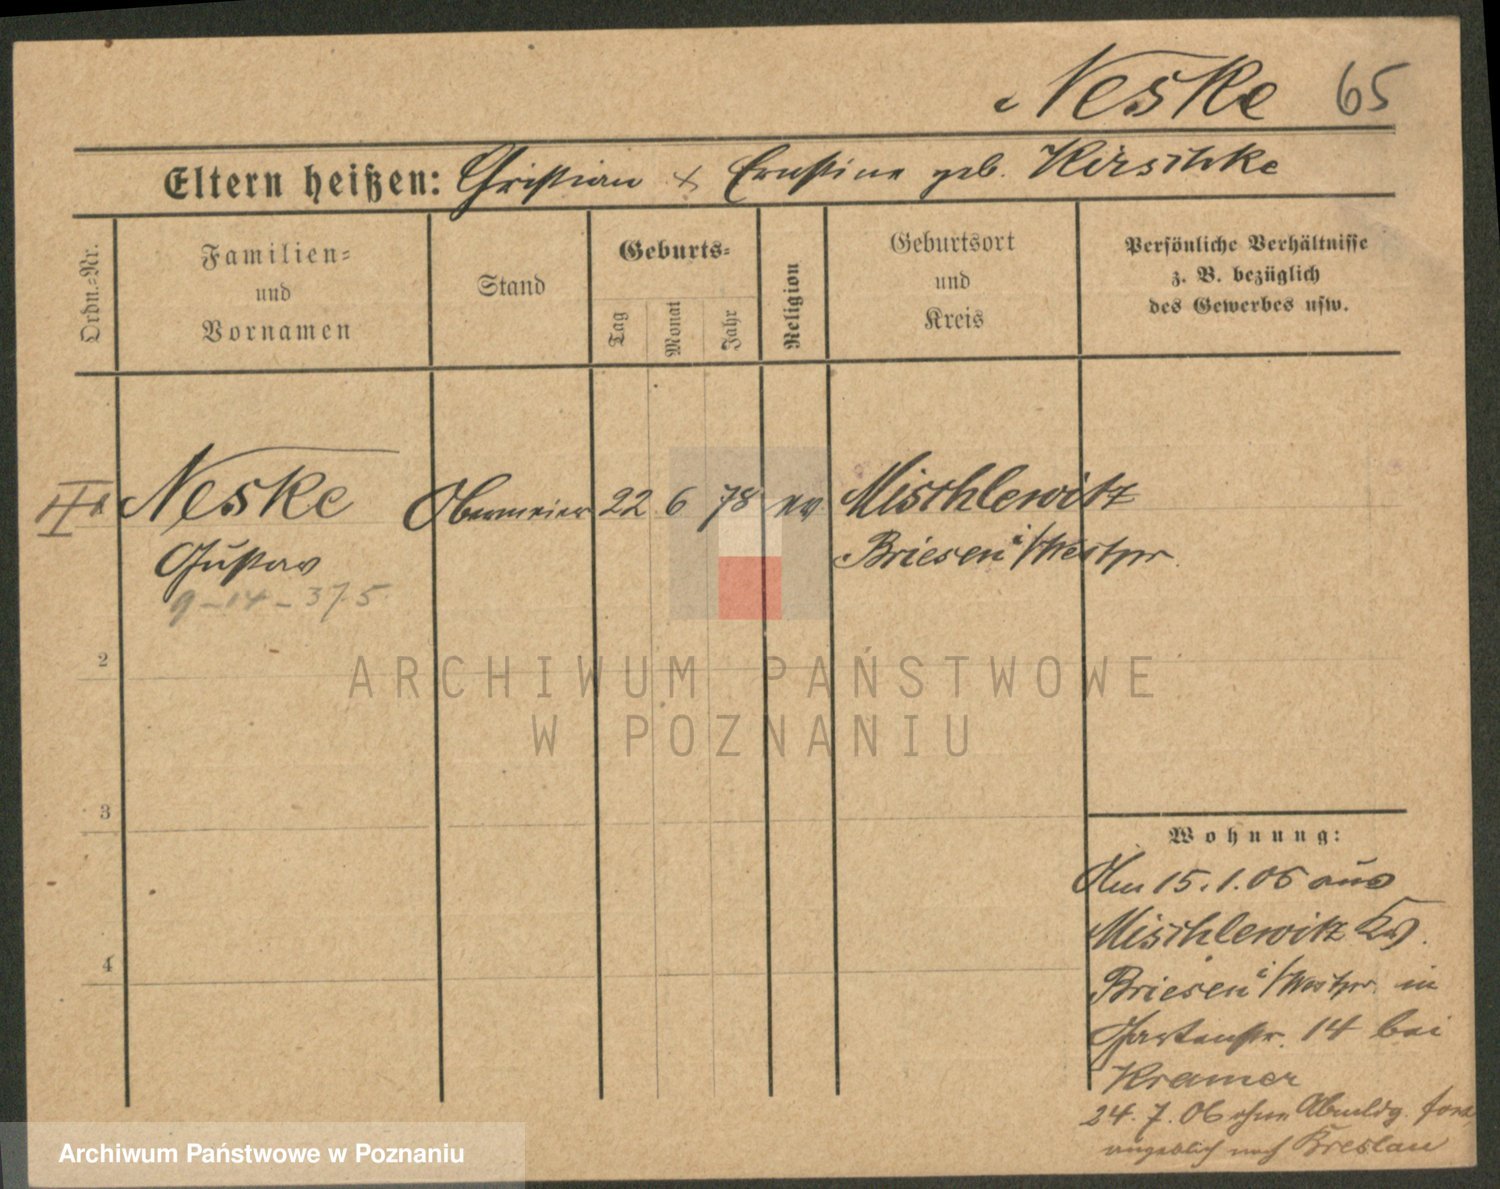 Neske 65
Eltern heißen: Christian & Ernstine geb. Kirschke
Ordn.=Nr.
Familien=
und
Vornamen
Stand
Geburts=
Tag
Monat
Jahr
Religion
Geburtsort
und
Kreis
Persönliche Verhältnisse
z. B. bezüglich
des Gewerbes usw.
Neske
Gustav
9-14-375
Obermeier
22 6 78 ev
Mischlewitz
Briesen i/Westpr.
2
3
4
ARCHIWUM PAŃSTWOWE
W POZNANIU
Wohnung:
Am 15.1.06 aus
Mischlewitz Krs.
Briesen i/Westpr. in
Gartenstr. 14 bei
Kramer
24.7.06 ohne Abmldg. fort,
angeblich nach Breslau
Archiwum Państwowe w Poznaniu